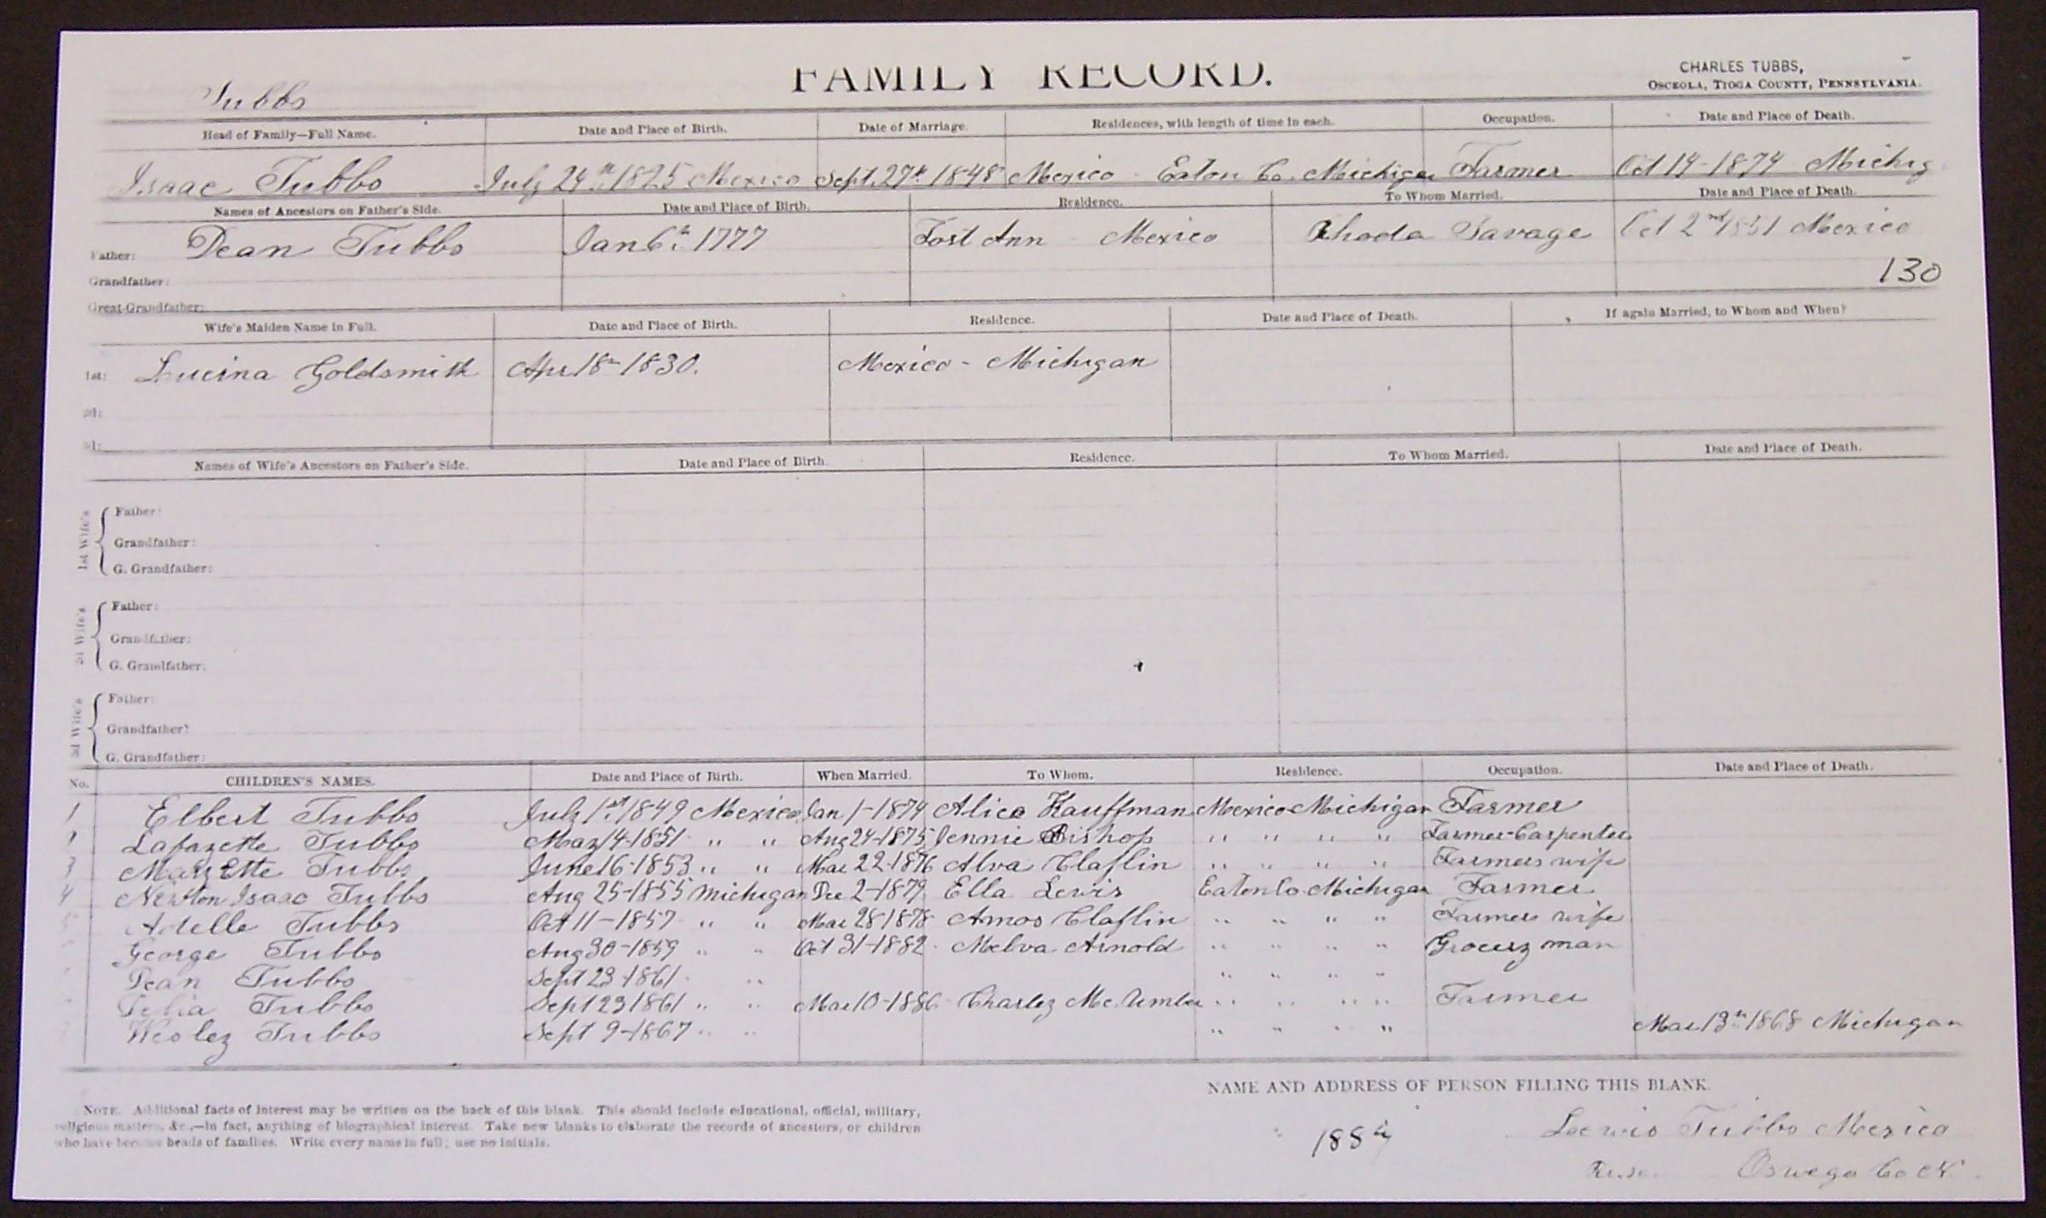 FAMILY RECORD.
CHARLES TUBBS,
OSCEOLA, TIOGA COUNTY, PENNSYLVANIA.
Tubbs
Head of Family—Full Name. Date and Place of Birth. Date of Marriage. Residences, with length of time in each. Occupation. Date and Place of Death.
Isaac Tubbs July 24th 1825 Mexico Sept. 27th 1848 Mexico Eaton Co. Michigan Farmer Oct 14-1874 Michig
Names of Ancestors on Father's Side. Date and Place of Birth. Residence. To Whom Married. Date and Place of Death.
Father: Dean Tubbs Jan 6th 1777 Fost Ann Mexico Rhoda Savage Oct 2nd 1851 Mexico
Grandfather: 130
Great-Grandfather:
Wife's Maiden Name in Full. Date and Place of Birth. Residence. Date and Place of Death. If again Married, to Whom and When?
1st: Lucina Goldsmith Apr 18th 1830. Mexico - Michigan
2d:
3d:
Names of Wife's Ancestors on Father's Side. Date and Place of Birth. Residence. To Whom Married. Date and Place of Death.
1st Wife's
Father:
Grandfather:
G. Grandfather:
2d Wife's
Father:
Grandfather:
G. Grandfather:
3d Wife's
Father:
Grandfather?
G. Grandfather:
No. CHILDREN'S NAMES. Date and Place of Birth. When Married. To Whom. Residence. Occupation. Date and Place of Death.
1 Elbert Tubbs July 1st 1849 Mexico Jan 1-1874 Alice Kauffman Mexico Michigan Farmer
2 Lafayette Tubbs May 14-1851 " " Aug 24-1875 Jennie Bishop " " " " Farmer-Carpenter
3 Maryette Tubbs June 16-1853 " " Mar 22-1876 Alva Claflin " " " " Farmers wife
4 Newton Isaac Tubbs Aug 25-1855 Michigan Dec 2-1879 Ella Lewis Eaton Co Michigan Farmer
5 Adelle Tubbs Oct 11-1857 " " Mar 28 1878 Amos Claflin " " " " Farmers wife
George Tubbs Aug 30-1859 " " Oct 31-1882 Melva Arnold " " " " Grocery man
Dean Tubbs Sept 23-1861 " " " " "
Delia Tubbs Sept 23 1861 " " Mar 10-1886 Charley Mc. Umber " " " " Farmer
Wesley Tubbs Sept 9-1867 " " " " " " Mar 13th 1868 Michigan
NAME AND ADDRESS OF PERSON FILLING THIS BLANK.
NOTE. Additional facts of interest may be written on the back of this blank. This should include educational, official, military,
religious matters, &c.,—in fact, anything of biographical interest. Take new blanks to elaborate the records of ancestors, or children
who have become heads of families. Write every name in full; use no initials.
Lewis Tubbs Mexico
188
Oswego Co N